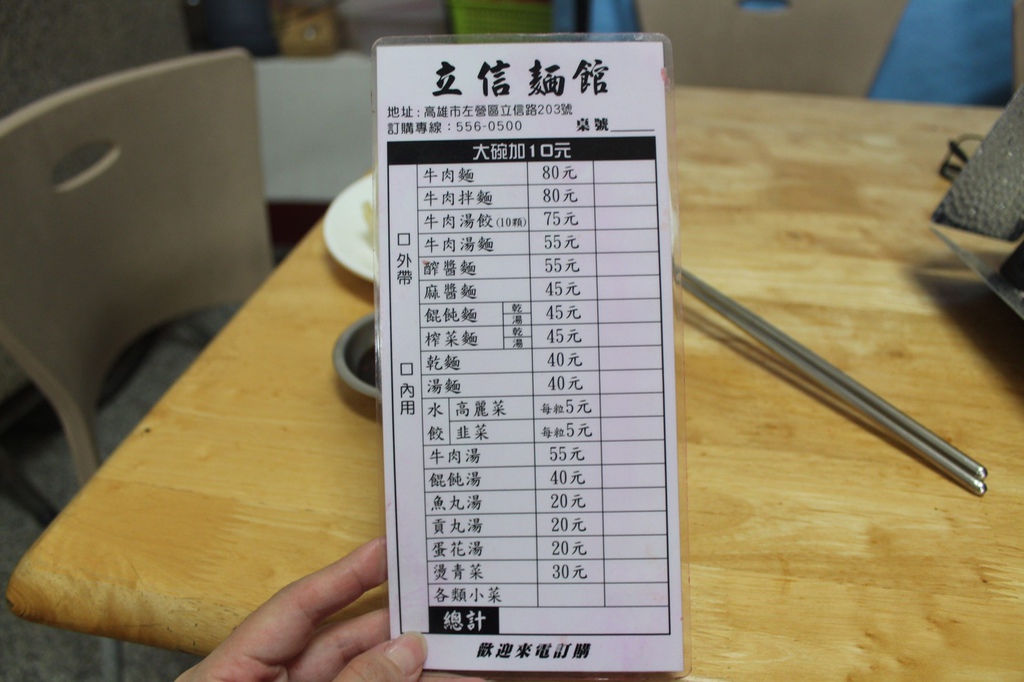 立信麵館
地址:高雄市左營區立信路203號
訂購專線:556-0500 桌號
大碗加10元
□外帶
□內用
牛肉麵 80元
牛肉拌麵 80元
牛肉湯餃(10顆) 75元
牛肉湯麵 55元
醡醬麵 55元
麻醬麵 45元
餛飩麵 乾 湯 45元
榨菜麵 乾 湯 45元
乾麵 40元
湯麵 40元
水餃 高麗菜 每粒5元
韭菜 每粒5元
牛肉湯 55元
餛飩湯 40元
魚丸湯 20元
貢丸湯 20元
蛋花湯 20元
燙青菜 30元
各類小菜
總計
歡迎來電訂購